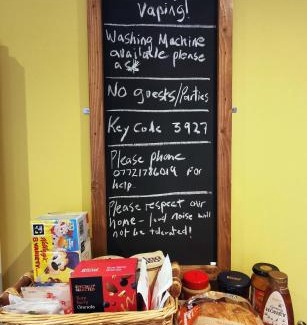 Vaping!
Washing Machine
available please
ask
No guests/Parties
Key Code 3927
Please phone
07721786019 for
help.
Please respect our
home - loud noise will
not be tolerated!
Kellogg's
VARIETY
Granola